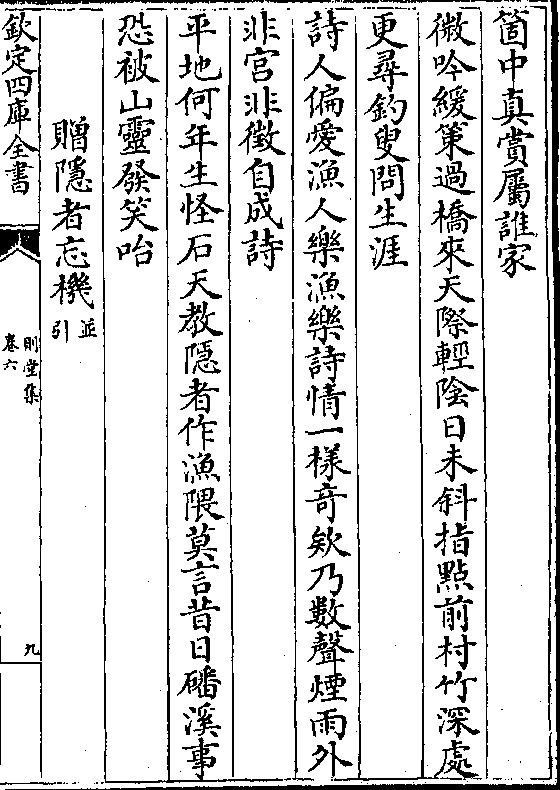 箇中真賞屬誰家
微吟緩策過橋來天際輕陰日未斜指點前村竹深處
更尋釣叟問生涯
詩人偏愛漁人樂漁樂詩情一樣奇欸乃數聲煙雨外
非宮非徵自成詩
平地何年生怪石天教隱者作漁隈莫言昔日磻溪事
恐被山靈發笑咍
贈隱者忘機並引
欽定四庫全書
則堂集
卷六
九